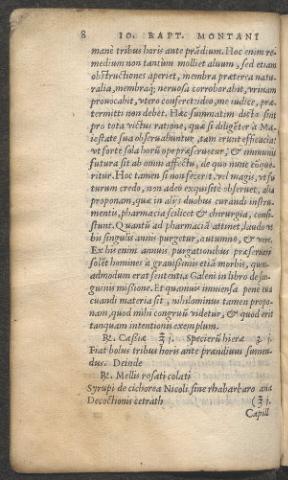 8 IO. BAPT. MONTANI
mane tribus horis ante prādium. Hoc enim re-
medium non tantùm molliet aluum, sed etiam
obstructiones aperiet, membra præterea natu-
ralia, membraq; neruosa corroborabit, vrinam
prouocabit, vtero conferet: ideo, me iudice, præ-
termitti non debēt. Hæc summatim dicta sint
pro tota victus ratione, quæ si diligēter à Ma-
iestate sua obseruabuntur, tam erunt efficacia:
vt forte sola horū ope præseruetur, & immunis
futura sit ab omni affectu, de quo nunc cōque-
ritur. Hoc tamen si non fecerit, vel magis, vt fu
turum credo, non adeò exquisitè obseruet, alia
proponam, quæ in alijs duobus curandi instru-
mentis, pharmacia scilicet & chirurgia, consi-
stunt. Quantū ad pharmaciā attinet, laudo vt
bis singulis annis purgetur, autumno, & vere.
Ex his enim annuis purgationibus præseruari
solēt homines à grauissimis etiā morbis, quē-
admodum erat sententia Galeni in libro de san-
guinis missione. Et quamuis immensa pene sit
cuandi materia sit, nihilominus tamen propo-
nam, quod mihi congruū videtur, & quod erit
tanquam intentionis exemplum.
℞. Cassiæ ℥ j. Specierū hieræ ʒ j.
Fiat bolus tribus horis ante prandium sumen-
dus. Deinde
℞. Mellis rosati colati
Syrupi de cichorea Nicoli sine rhabarbaro ana
Decoctionis cetrach (℥ j.
Capill